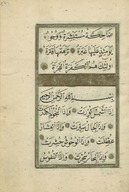 ضاحكة مستبشرة ووجوه
يومئذ عليها غبرة ترهقها قترة
اولئك هم الكفرة الفجرة
بسم الله الرحمن الرحيم
اذا الشمس كورت واذا النجوم
انكدرت واذا الجبال سيرت واذا العشار
عطلت واذا الوحوش حشرت
واذا البحار سجرت واذا النفوس